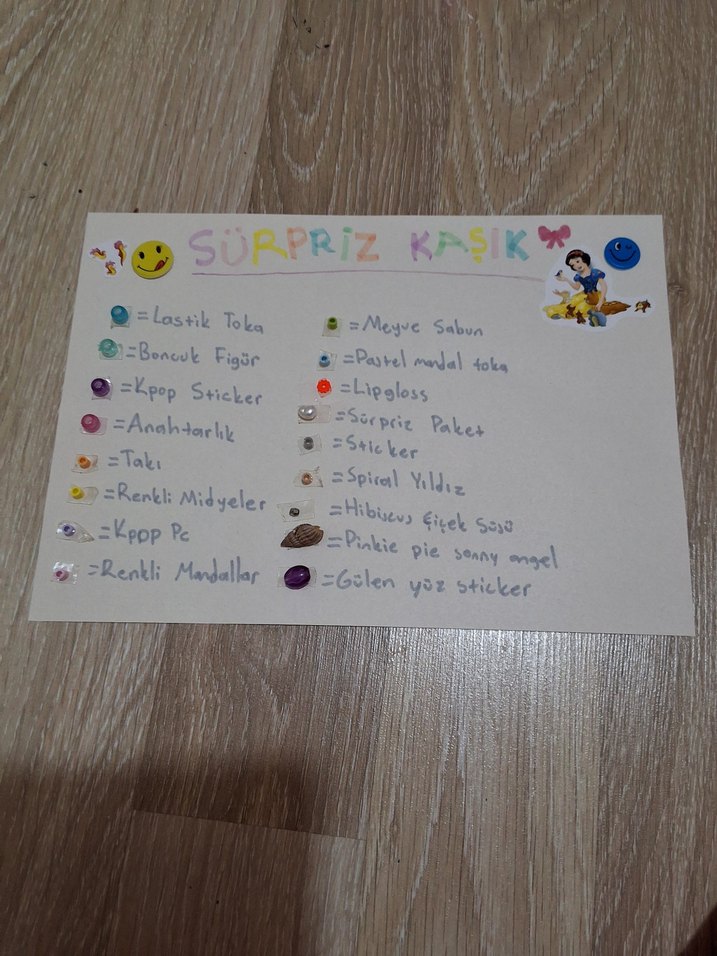 SÜRPRİZ KAŞIK
=Lastik Toka
=Boncuk Figür
=Kpop Sticker
=Anahtarlık
=Takı
=Renkli Midyeler
=Kpop Pc
=Renkli Mandallar
=Meyve Sabun
=Pastel mandal toka
=Lipgloss
=Sürpriz Paket
=Sticker
=Spiral Yıldız
=Hibiscus Çiçek Süsü
=Pinkie pie sonny angel
=Gülen yüz sticker